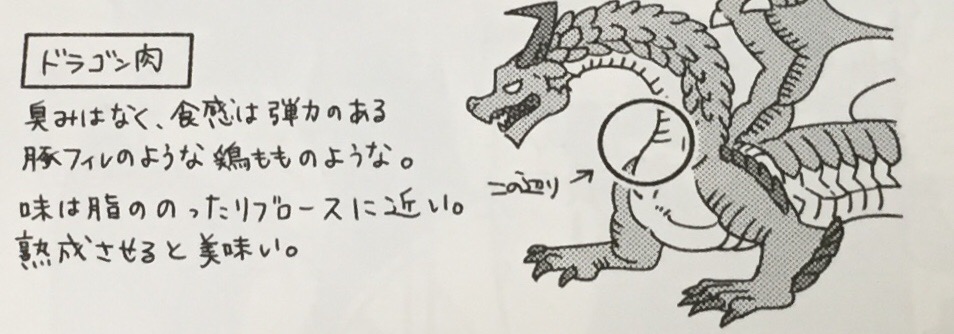 ドラゴン肉
臭みはなく、食感は弾力のある
豚フィレのような鶏もものような。
味は脂ののったリブロースに近い。
熟成させると美味い。
この辺り